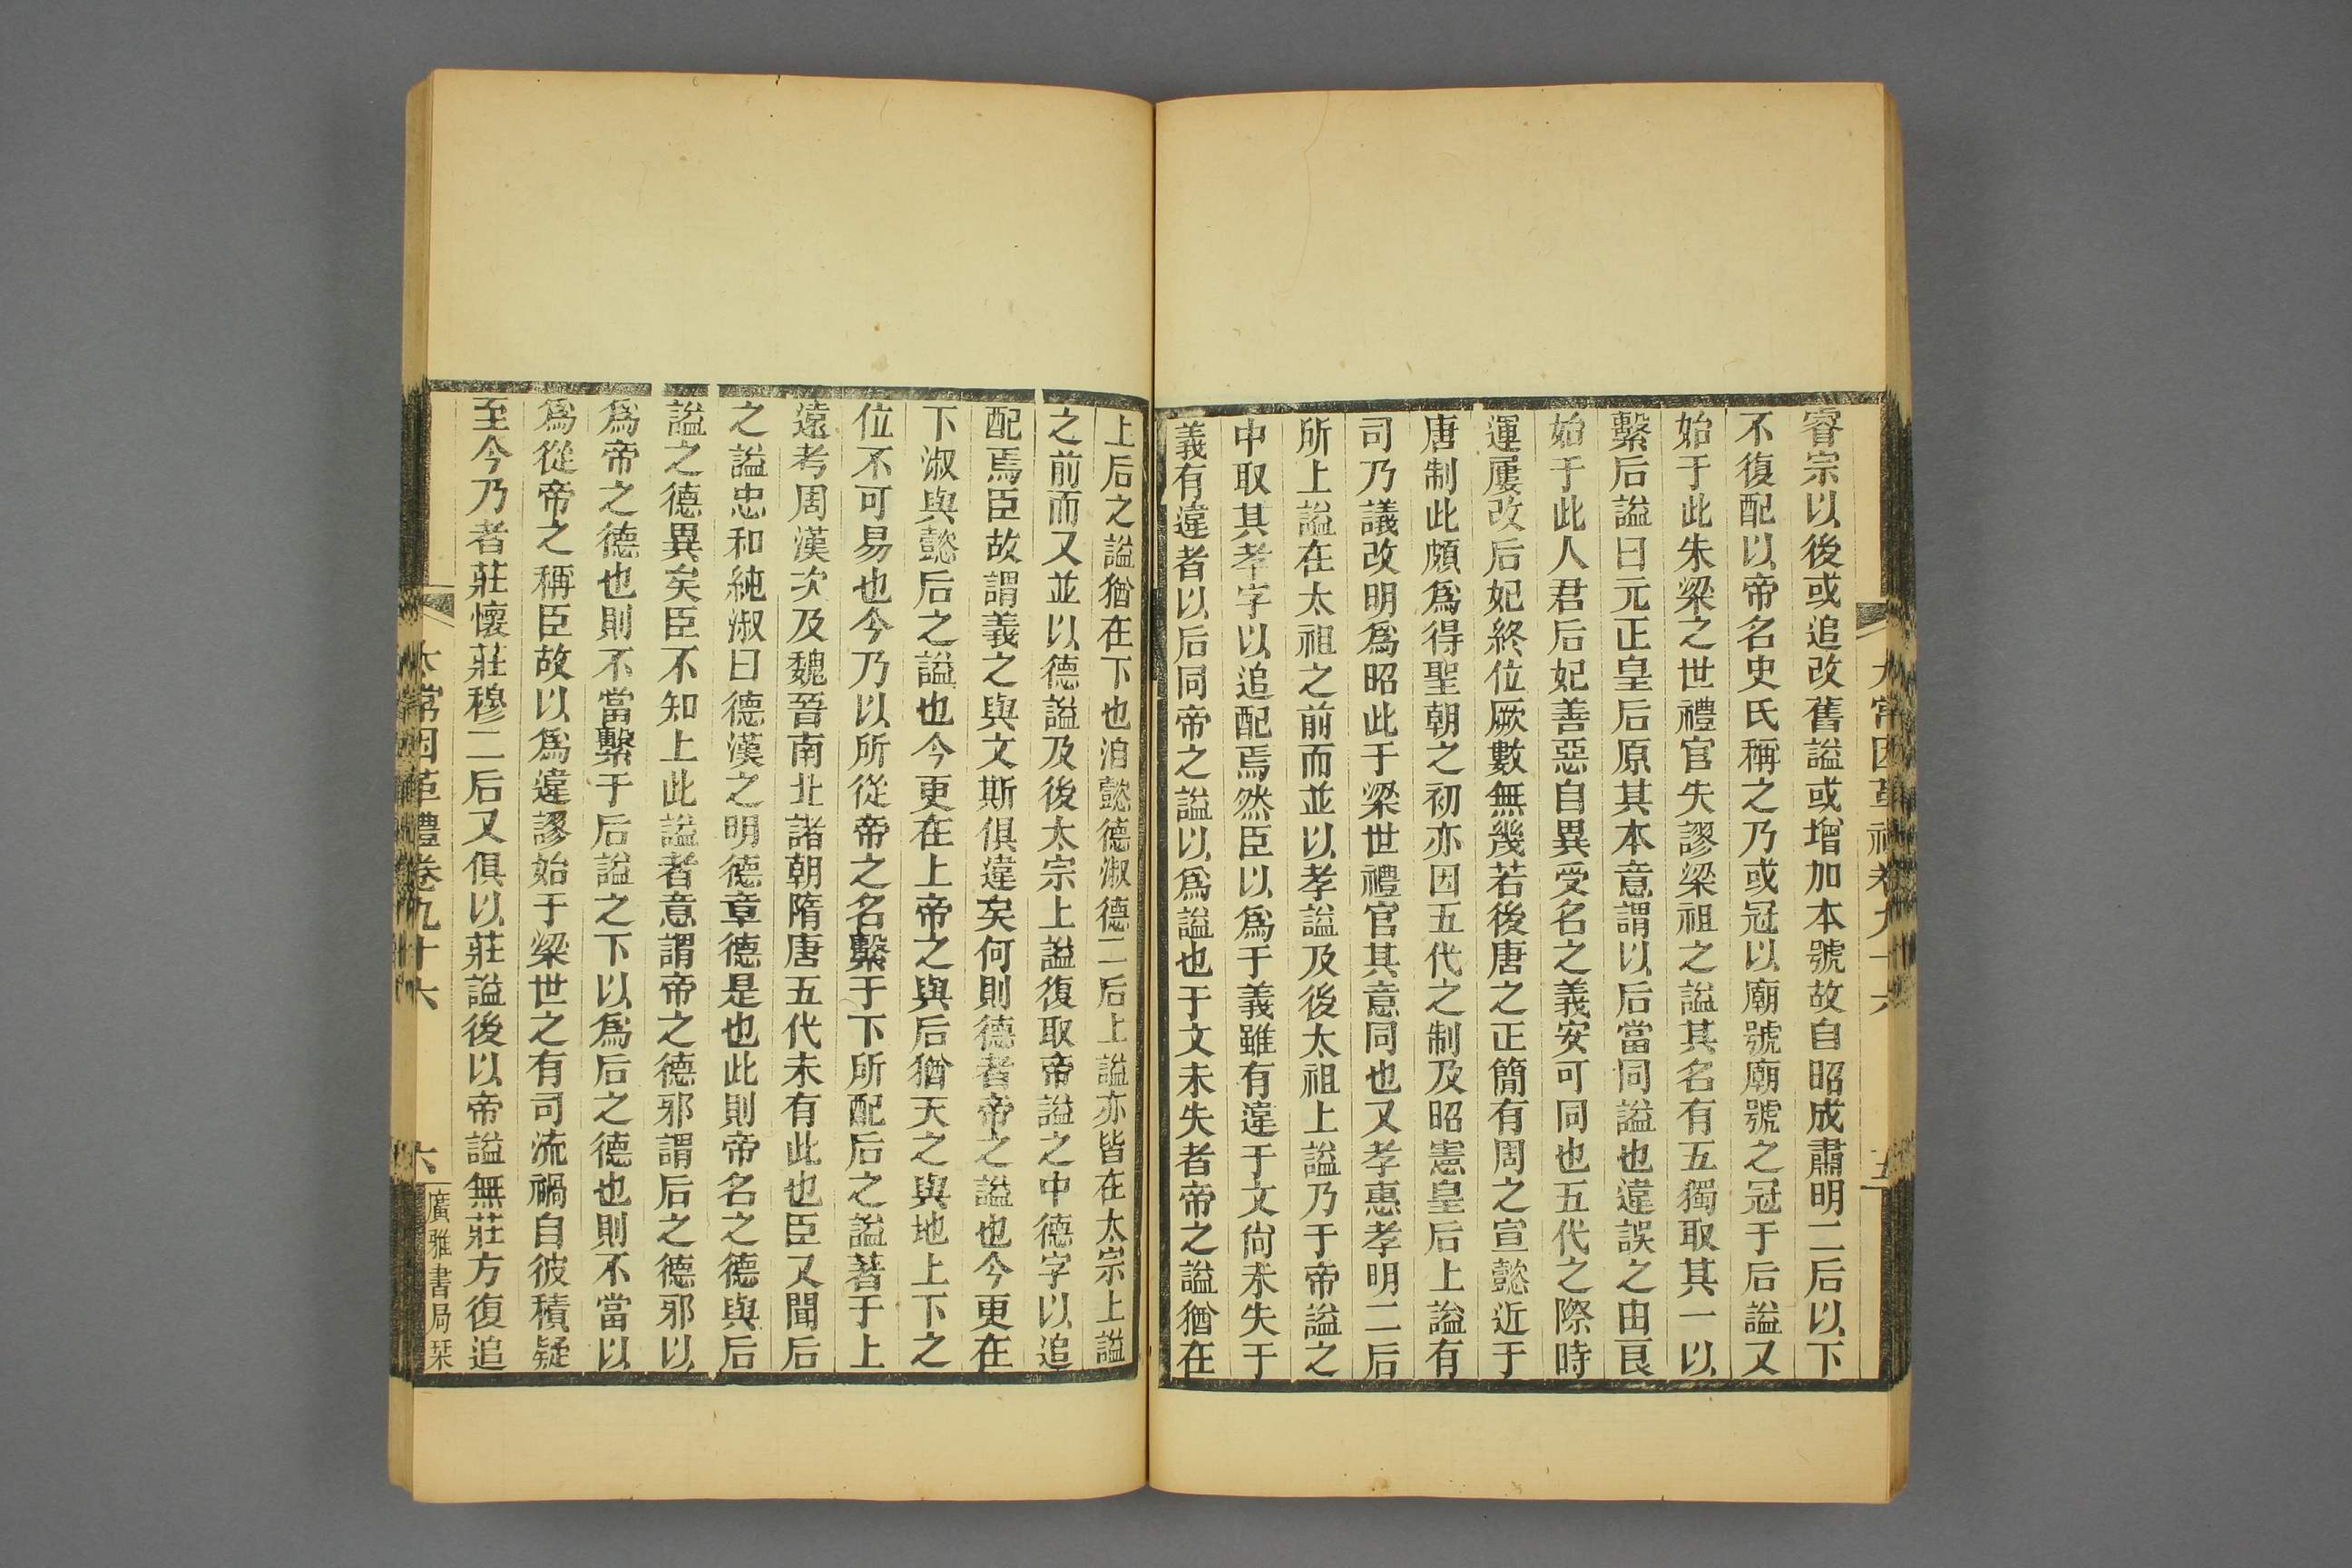 太常因革禮卷九十六
五
睿宗以後或追改舊謚或增加本號故自昭成肅明二后以下
不復配以帝名史氏稱之乃或冠以廟號廟號之冠于后謚又
始于此朱梁之世禮官失謬梁祖之謚其名有五獨取其一以
繫后謚曰元正皇后原其本意謂以后當同謚也違誤之由艮
始于此人君后妃善惡自異受名之義安可同也五代之際時
運屢改后妃終位厥數無幾若後唐之正簡有周之宣懿近于
唐制此頗爲得聖朝之初亦因五代之制及昭憲皇后上謚有
司乃議改明爲昭此于梁世禮官其意同也又孝惠孝明二后
所上謚在太祖之前而並以孝謚及後太祖上謚乃于帝謚之
中取其孝字以追配焉然臣以爲于義雖有違于文尙未失于
義有違者以后同帝之謚以爲謚也于文未失者帝之謚猶在
上后之謚猶在下也洎懿德淑德二后上謚亦皆在太宗上謚
之前而又並以德謚及後太宗上謚復取帝謚之中德字以追
配焉臣故謂義之與文斯俱違矣何則德者帝之謚也今更在
下淑與懿后之謚也今更在上帝之與后猶天之與地上下之
位不可易也今乃以所從帝之名繫于下所配后之謚著于上
遠考周漢次及魏晉南北諸朝隋唐五代未有此也臣又聞后
之謚忠和純淑曰德漢之明德章德是也此則帝名之德與后
謚之德異矣臣不知上此謚者意謂帝之德邪謂后之德邪以
爲帝之德也則不當繫于后謚之下以爲后之德也則不當以
爲從帝之稱臣故以爲違謬始于梁世之有司流禍自彼積疑
至今乃者莊懷莊穆二后又俱以莊謚後以帝謚無莊方復追
太常因革禮卷九十六
六
廣雅書局栞